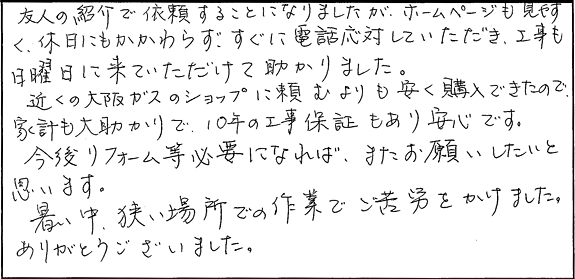 友人の紹介で依頼することになりましたが、ホームページも見やす
く、休日にもかかわらず、すぐに電話応対していただき、工事も
日曜日に来ていただけて助かりました。
近くの大阪ガスのショップに頼むよりも安く購入できたので、
家計も大助かりで、10年の工事保証もあり安心です。
今後リフォーム等必要になれば、またお願いしたいと
思います。
暑い中、狭い場所での作業でご苦労をかけました。
ありがとうございました。